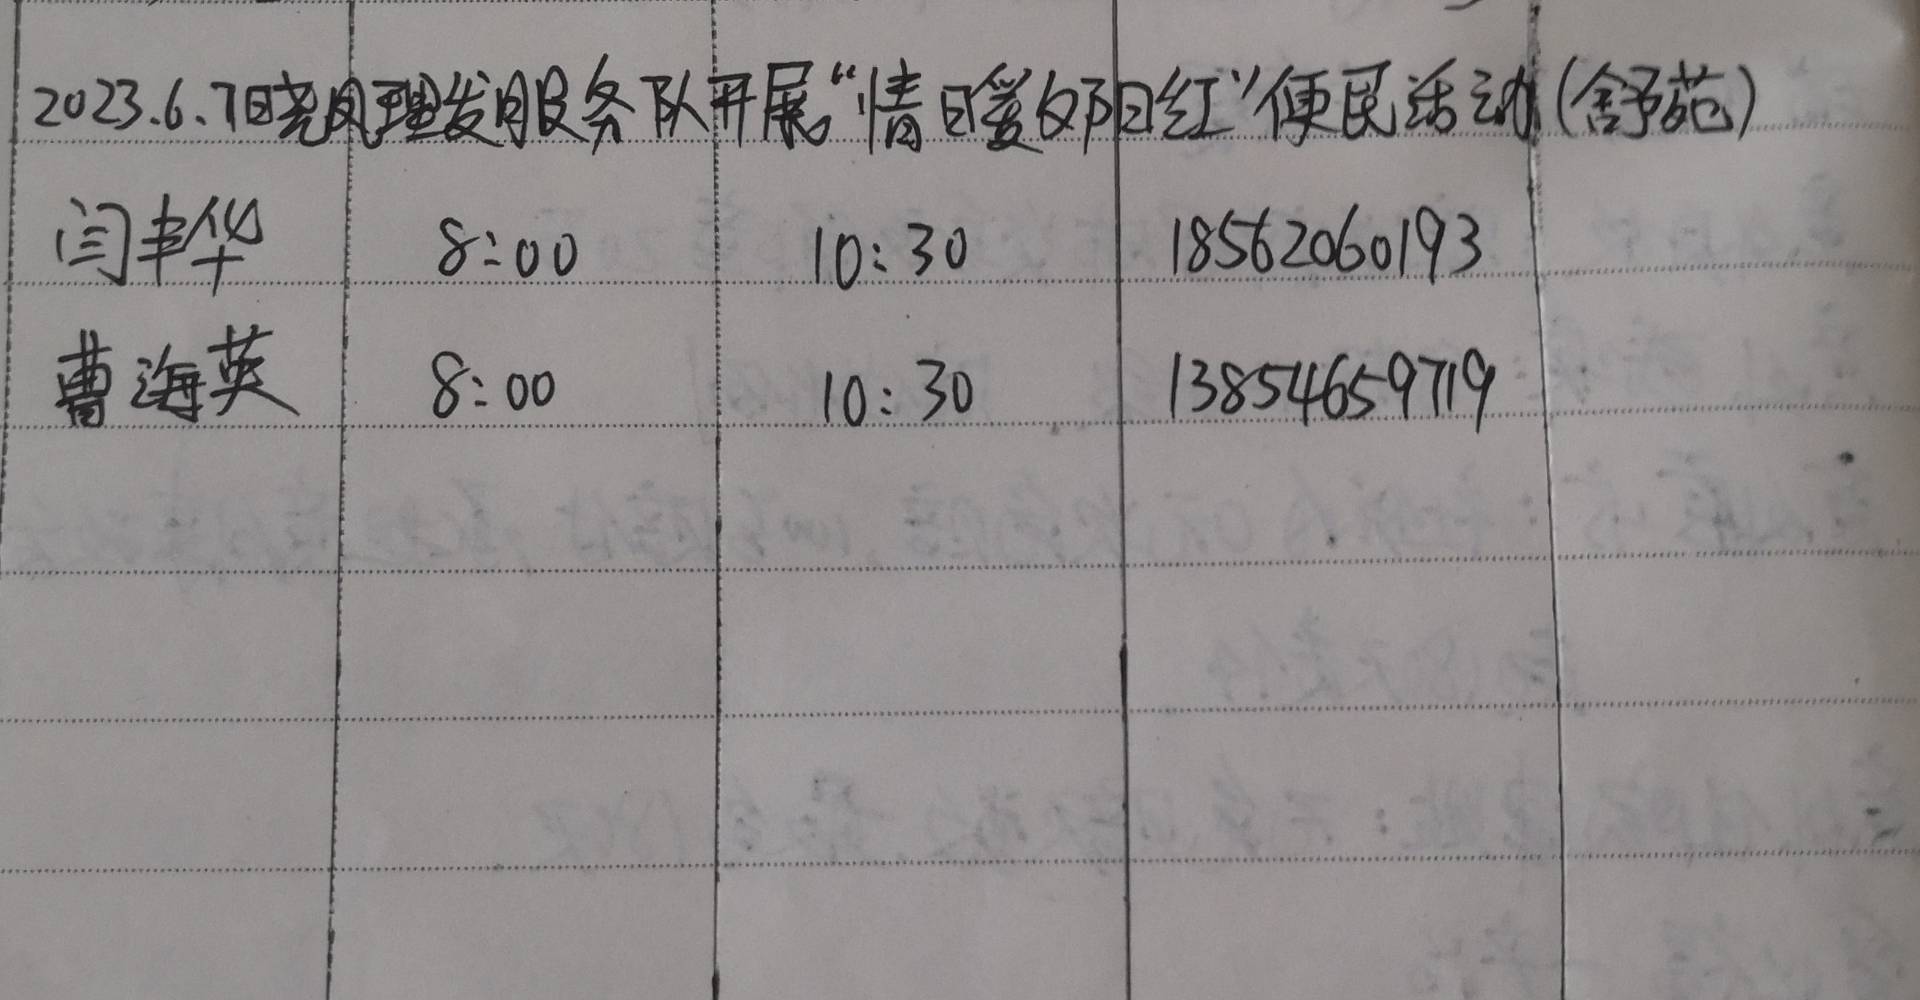 2023.6.7日晓风理发服务队开展“情暖夕阳红”便民活动(舒苑)
闫丰华 8:00 10:30 18562060193
曹海英 8:00 10:30 13854659719